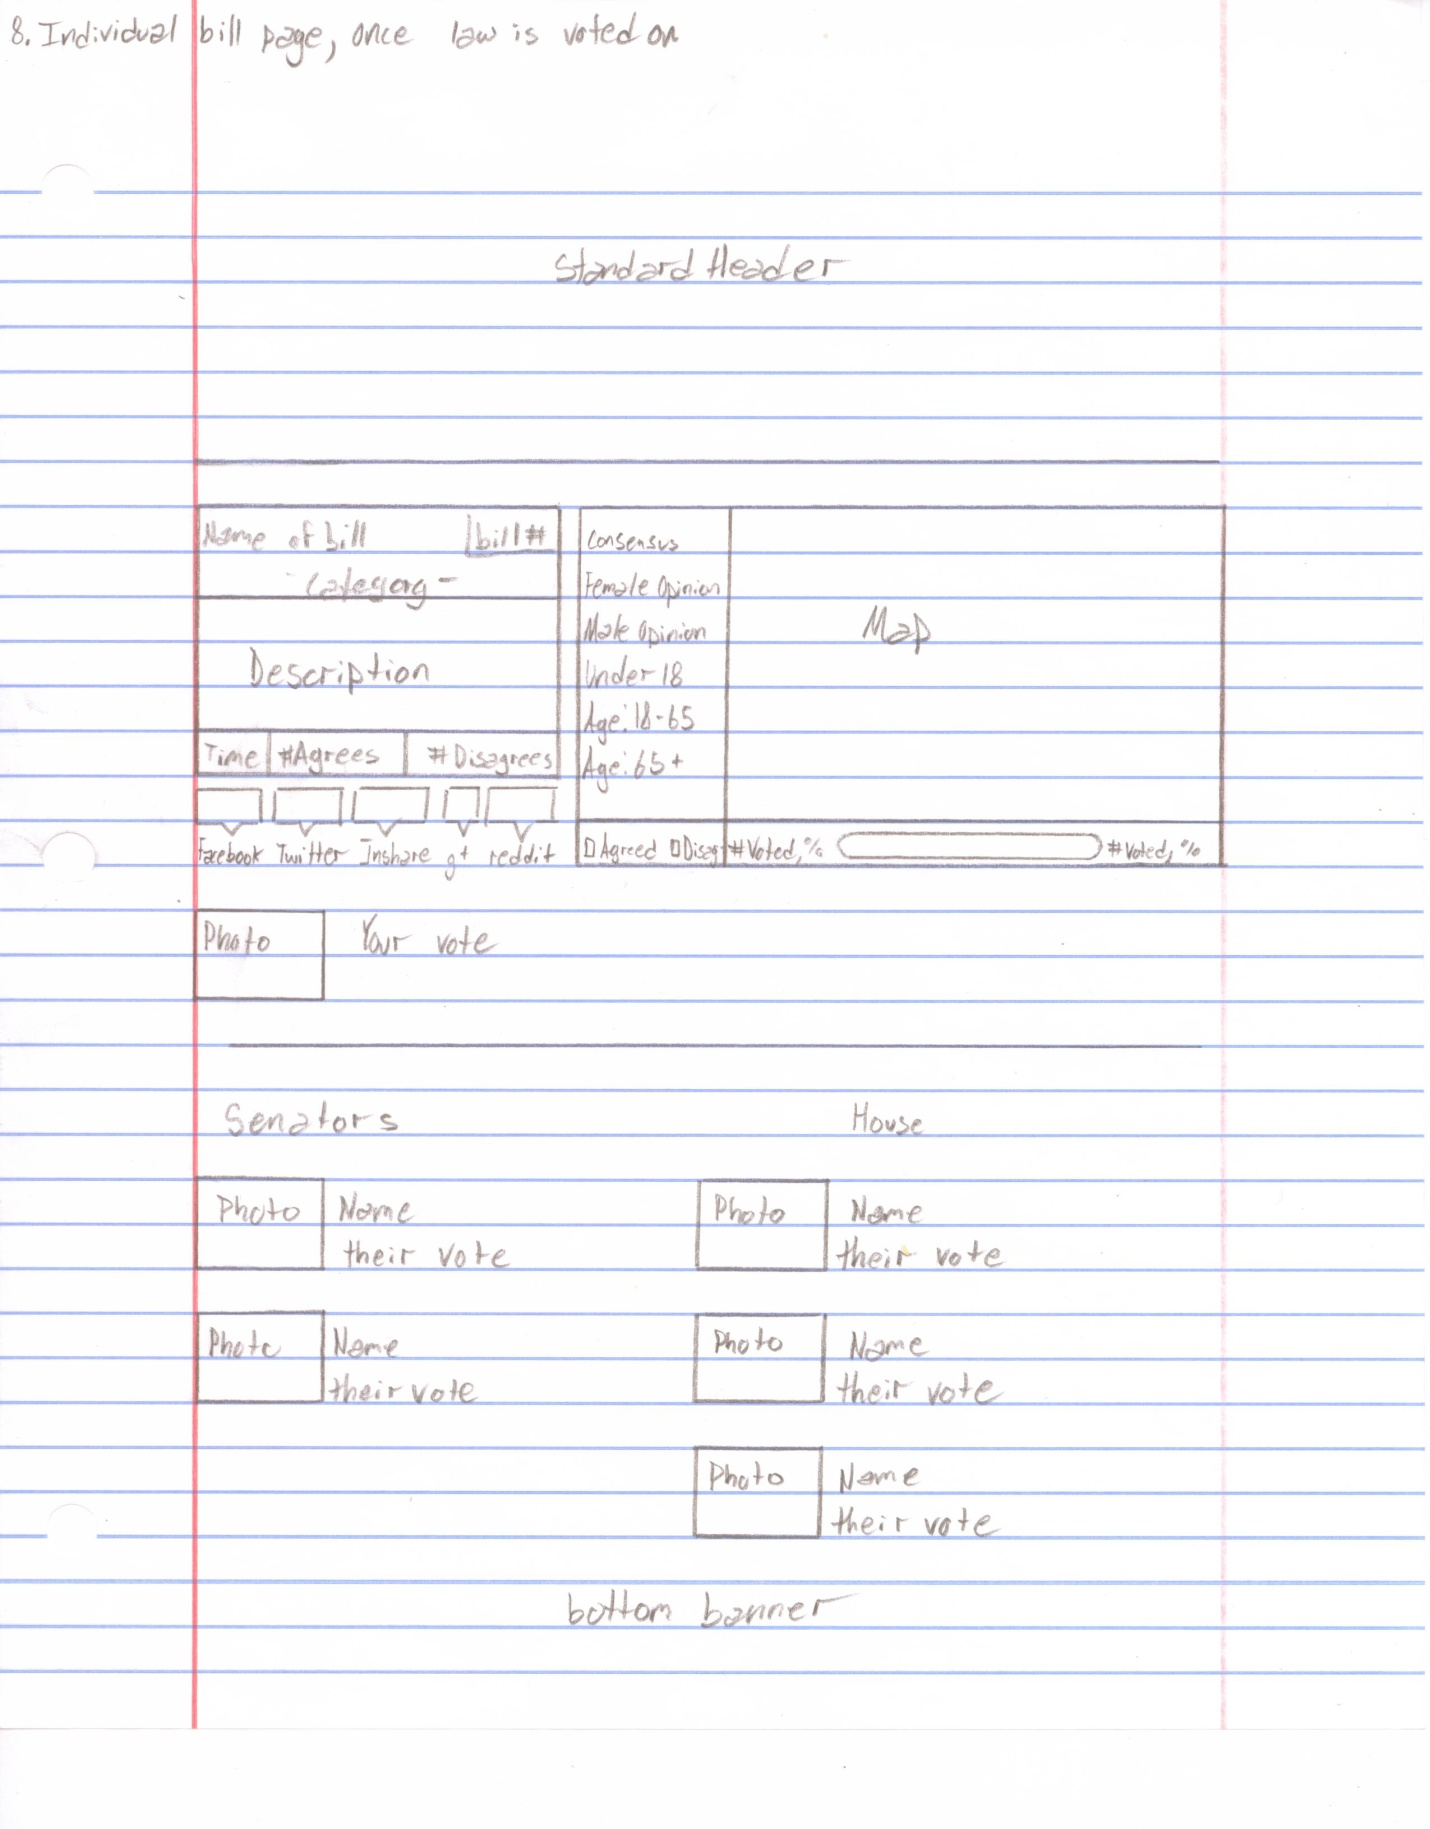 8. Individual bill page, once law is voted on
Standard Header
Name of bill bill#
-Category-
Description
Time #Agrees #Disagrees
Facebook Twitter Inshare g+ reddit
Consensus
Female Opinion
Male Opinion
Under 18
Age: 18-65
Age: 65+
Map
Agreed Disag #Voted, % #Voted, %
Photo Your vote
Senators House
Photo Name Photo Name
their vote their vote
Photo Name Photo Name
their vote their vote
Photo Name
their vote
bottom banner